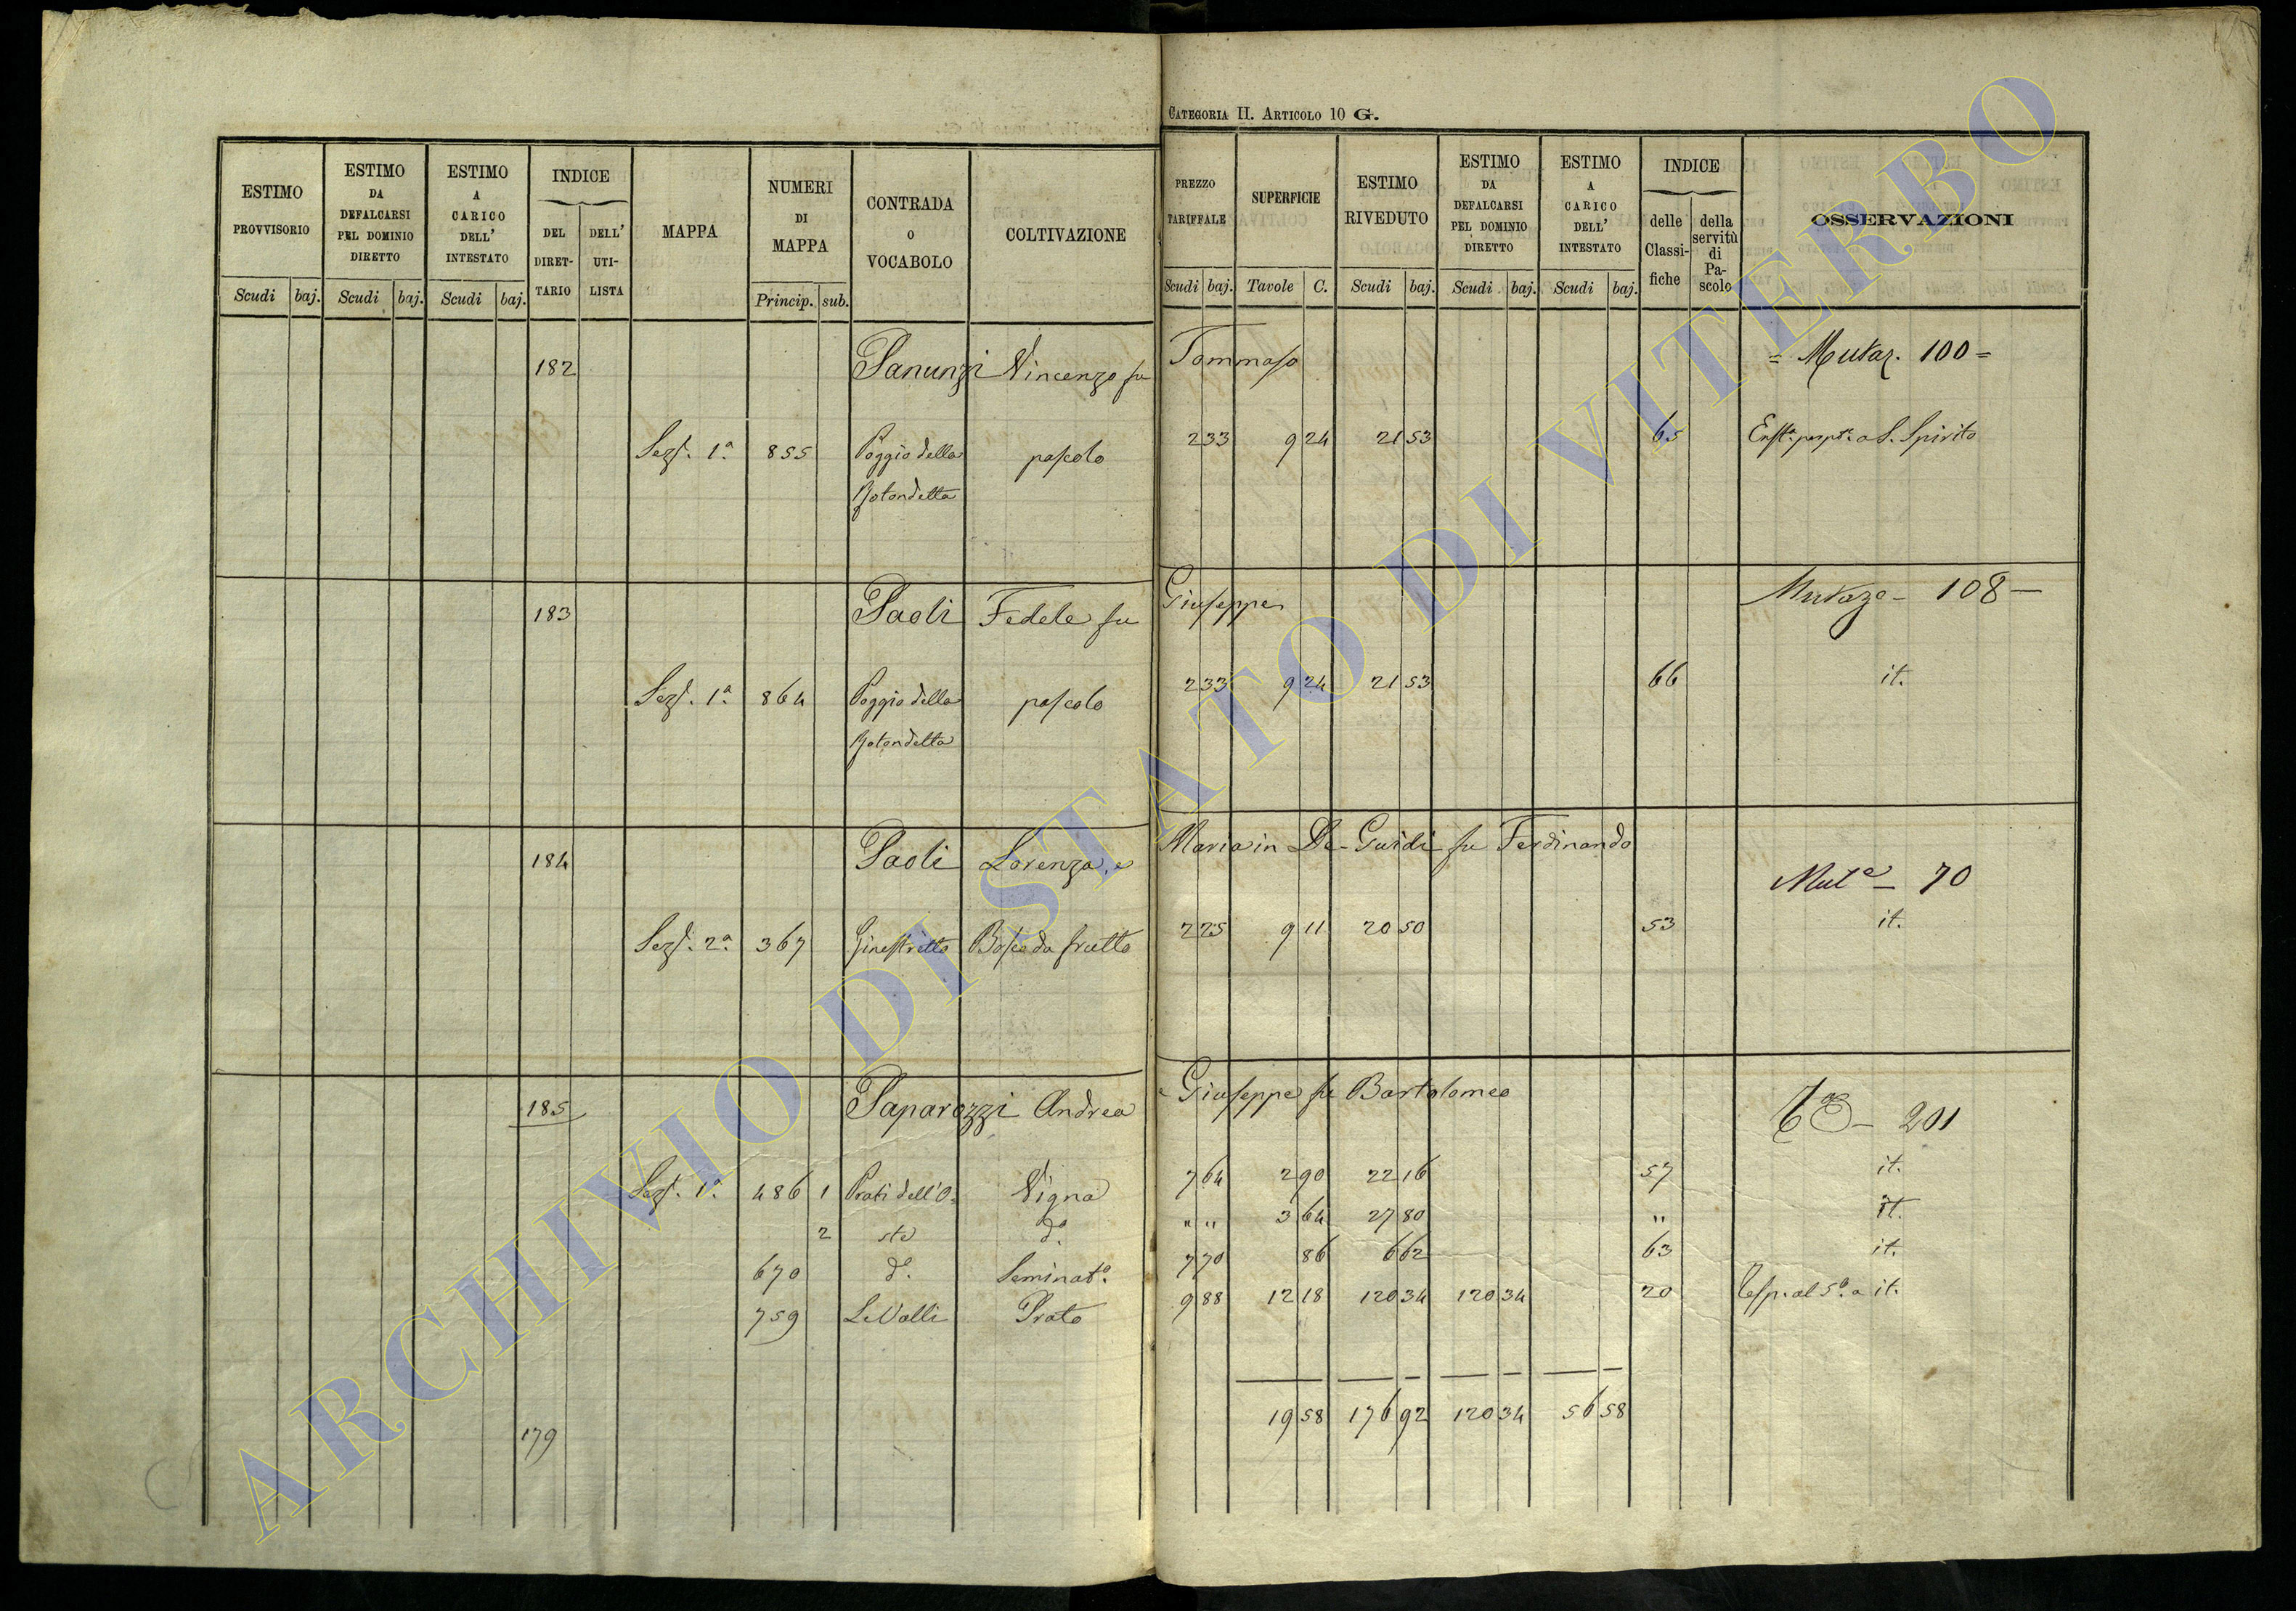 CATEGORIA II. ARTICOLO 10 G.
ESTIMO PROVVISORIO
Scudi baj.
ESTIMO DA DEFALCARSI PEL DOMINIO DIRETTO
Scudi baj.
ESTIMO A CARICO DELL' INTESTATO
Scudi baj.
INDICE
DEL DIRET-TARIO
DELL' UTI-LISTA
MAPPA
NUMERI DI MAPPA
Princip. sub.
CONTRADA O VOCABOLO
COLTIVAZIONE
PREZZO TARIFFALE
Scudi baj.
SUPERFICIE
Tavole C.
ESTIMO RIVEDUTO
Scudi baj.
ESTIMO DA DEFALCARSI PEL DOMINIO DIRETTO
Scudi baj.
ESTIMO A CARICO DELL' INTESTATO
Scudi baj.
INDICE
delle Classi-fiche
della servitù di Pa-scolo
OSSERVAZIONI
182 Panunzi Vincenzo fu Tommaso = Mutaz. 100 =
Sez. 1a. 855 Poggio della pascolo 2 33 9 24 21 53 65 a S. Spirito
Rotondetta
183 Paoli Fedele fu Giuseppe 108 —
Sez. 1a. 864 Poggio della pascolo 2 33 9 24 21 53 66 it.
Rotondetta
184 Paoli Lorenza, e Maria in De-Guidi fu Ferdinando
Mute — 70
Sez. 2a. 367 Ginestretto Bosco da frutto 2 25 9 11 20 50 53 it.
185 Paparozzi Andrea e Giuseppe fu Bartolomeo
201
Sez. 1a. 486 1 Prati dell'O- Vigna 7 64 2 90 22 16 57 it.
2 ste do. " " 3 64 27 80 " it.
670 do. Seminato. 7 70 86 6 62 63 it.
759 Le Valli Prato 9 88 12 18 120 34 120 34 20 al 5o. a it.
19 58 176 92 120 34 56 58
179
ARCHIVIO DI STATO DI VITERBO